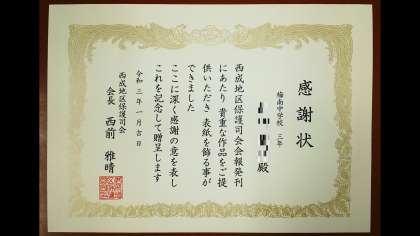 感謝状
梅南中学校 三年
殿
西成地区保護司会会報発刊
にあたり 貴重な作品をご提
供いただき 表紙を飾る事が
できました
ここに深く感謝の意を表し
これを記念して贈呈します
令和三年一月吉日
西成地区保護司会
会長 西前 雅晴